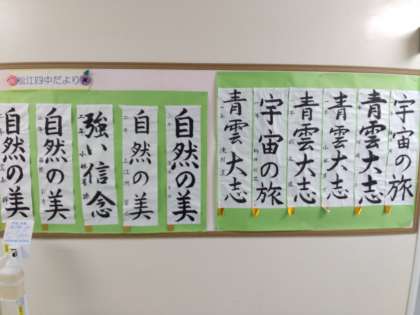 松江四中だより
宇宙の旅
青雲大志
青雲大志
青雲大志
宇宙の旅
青雲大志
自然の美
自然の美
強い信念
自然の美
自然の美